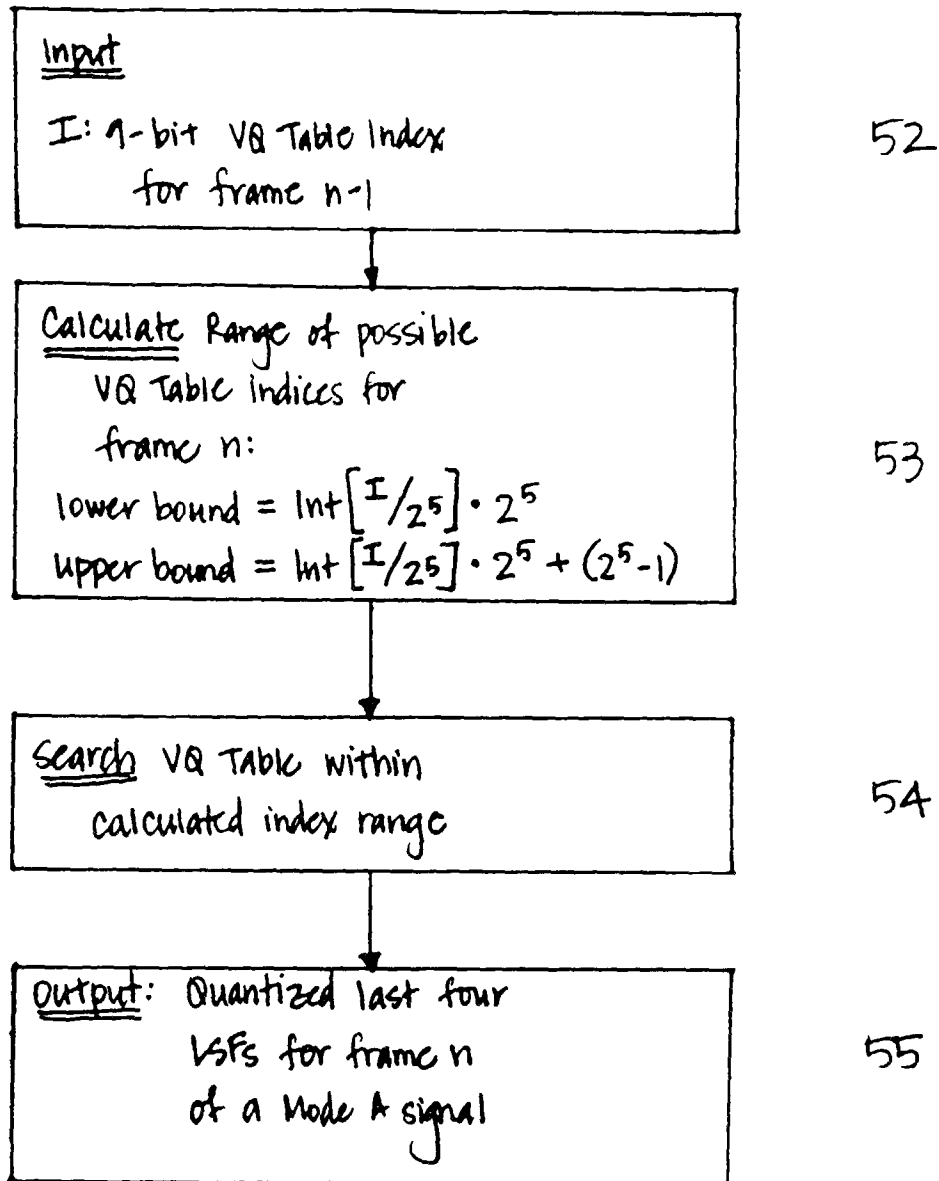 Input
I: 9-bit VQ Table Index
for frame n-1
52
Calculate Range of possible
VQ Table indices for
frame n:
lower bound = Int[I/2^5] · 2^5
upper bound = Int[I/2^5] · 2^5 + (2^5-1)
53
Search VQ Table within
calculated index range
54
Output: Quantized last four
LSFs for frame n
of a Mode A signal
55